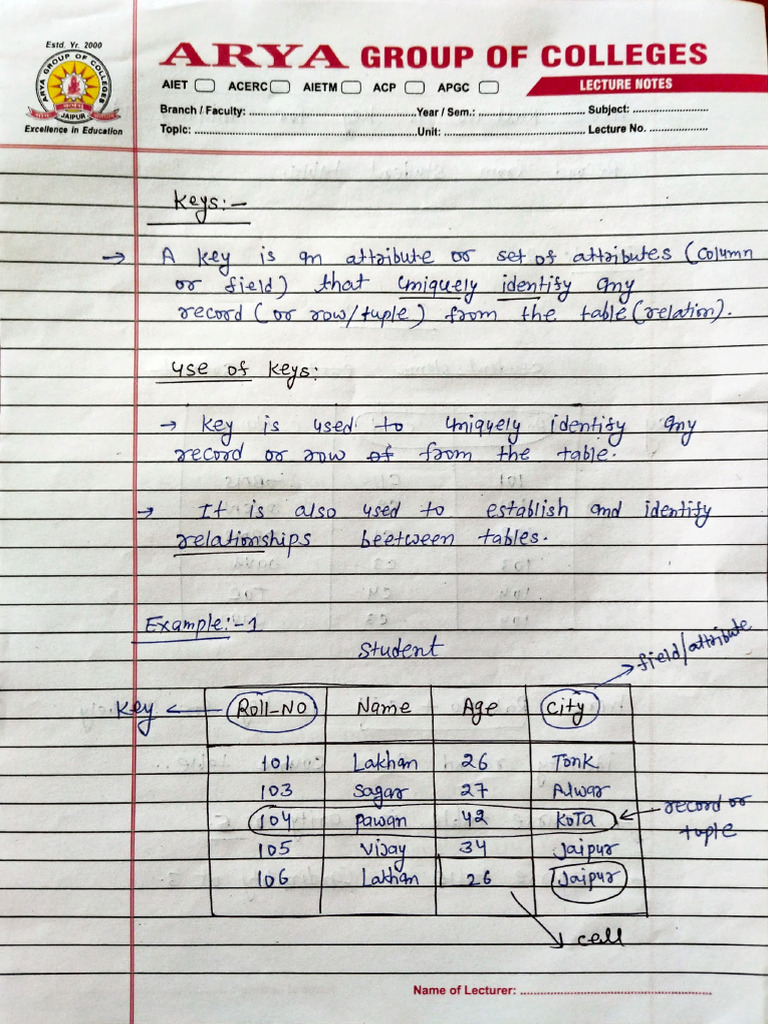 Estd. Yr. 2000
ARYA GROUP OF COLLEGES
JAIPUR
Excellence in Education
ARYA GROUP OF COLLEGES
AIET ACERC AIETM ACP APGC LECTURE NOTES
Branch / Faculty: Year / Sem.: Subject:
Topic: Unit: Lecture No.
Keys:-
→ A key is an attribute or set of attributes (column
or field) that uniquely identify any
record (or row/tuple) from the table (relation).
use of keys:
→ key is used to uniquely identify any
record or row of from the table.
→ It is also used to establish and identify
relationships beetween tables.
Example:-1
Student
field/attribute
Key ← Roll-NO Name Age City
101 Lakhan 26 Tonk
103 Sagar 27 Alwar
104 pawan 42 KoTa ← record or tuple
105 Vijay 34 Jaipur
106 Lakhan 26 Jaipur
cell
Name of Lecturer: